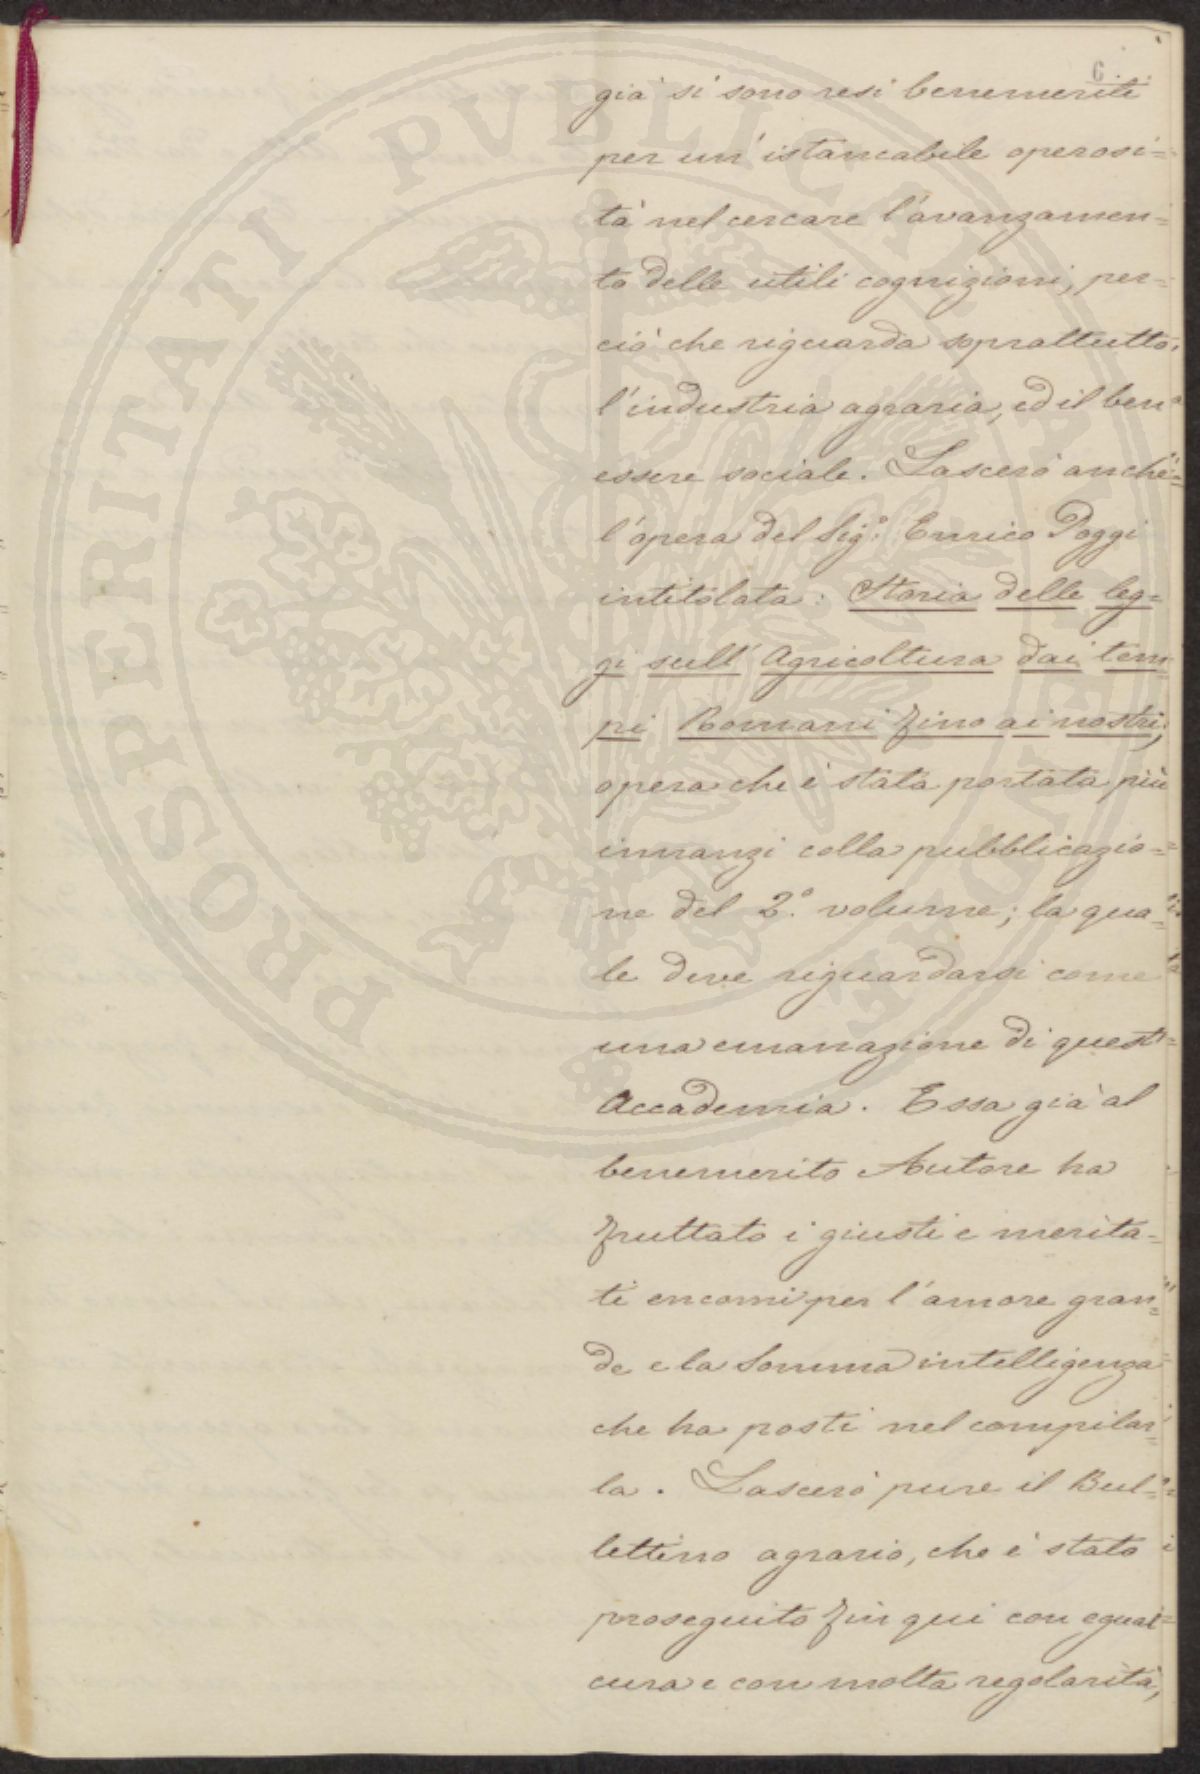 6.
già si sono resi benemeriti
per un' istancabile operosi=
tà nel cercare l'avanzamen=
to delle utili cognizioni, per=
ciò che riguarda soprattutto
l'industria agraria, ed il ben
essere sociale. Lascerò anche
l'opera del Sig.º Enrico Poggi
intitolata: Storia delle leg=
gi sull' Agricoltura dai tem=
pi Romani fino ai nostri;
opera che è stata portata più
innanzi colla pubblicazio=
ne del 2.º volume; la qua=
le deve riguardarsi come
una emanazione di quest'
Accademia. Essa già al
benemerito Autore ha
fruttato i giusti e merita=
ti encomi per l'amore gran=
de e la somma intelligenza
che ha posti nel compilar=
la. Lascerò pure il Bul=
lettino agrario, che è stato
proseguito fin qui con egual
cura e con molta regolarità,
PROSPERITATI PVBLICAE AVGENDAE